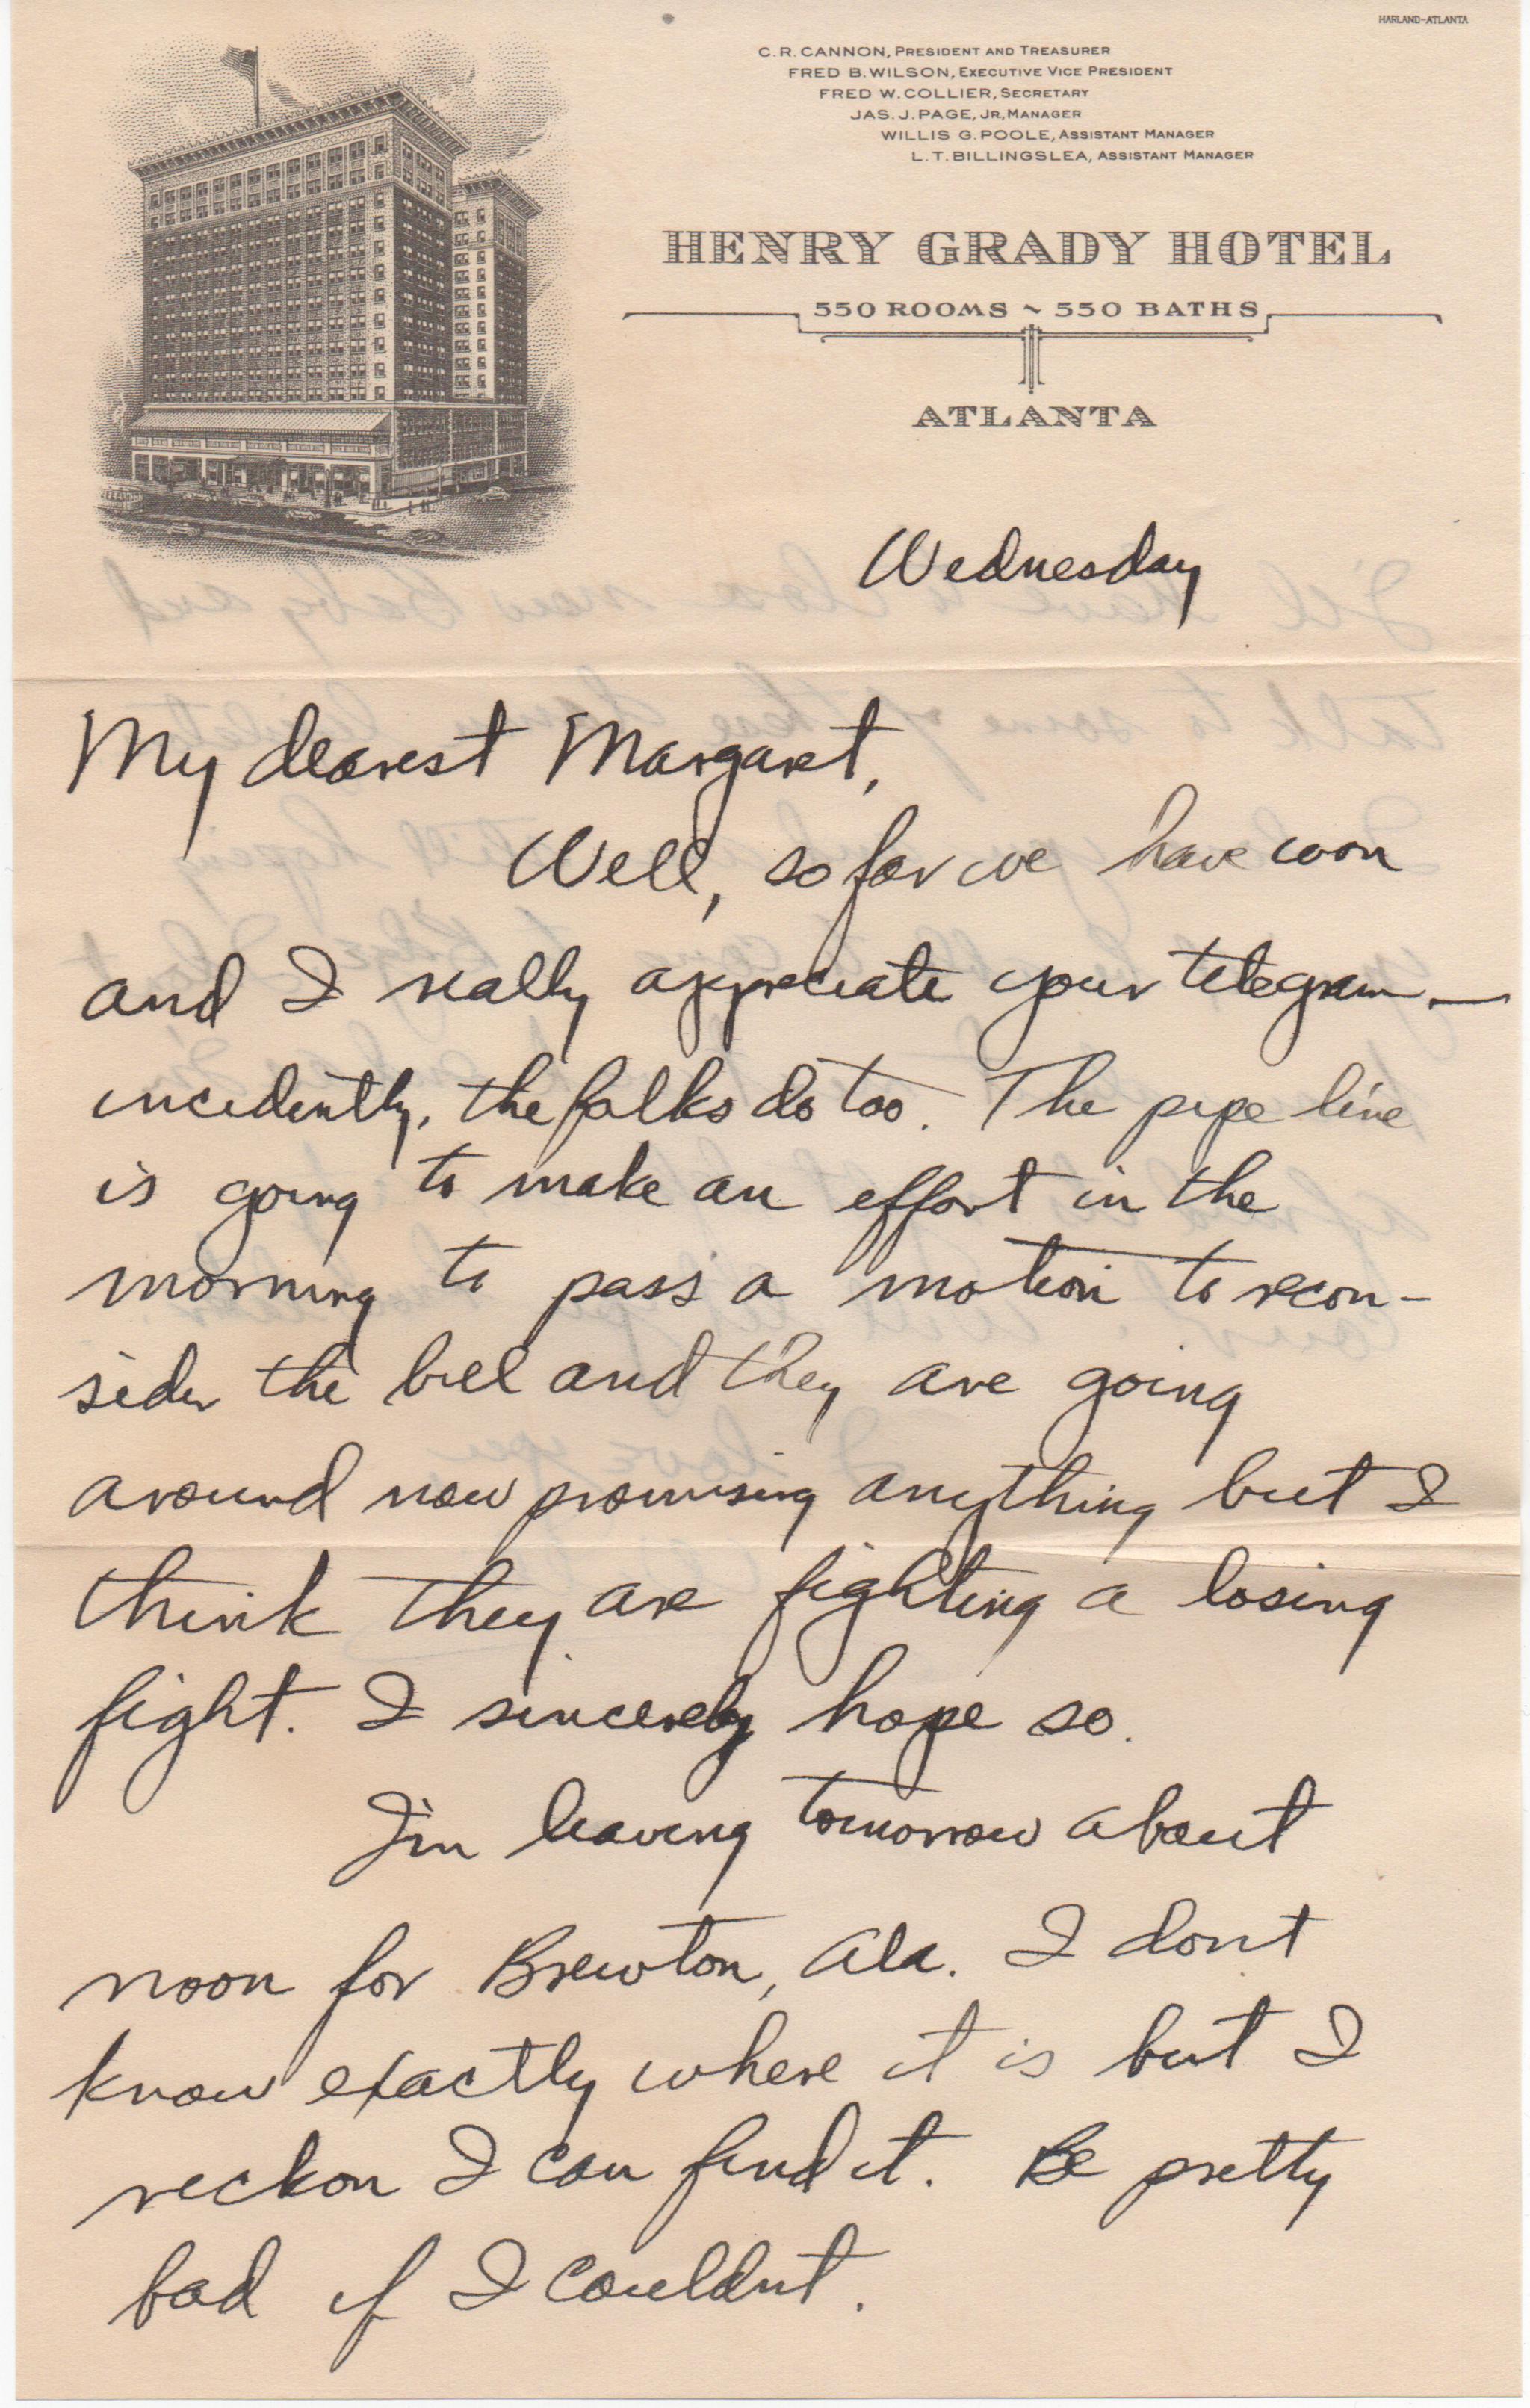 HARLAND-ATLANTA
C.R. CANNON, PRESIDENT AND TREASURER
FRED B. WILSON, EXECUTIVE VICE PRESIDENT
FRED W. COLLIER, SECRETARY
JAS. J. PAGE, JR, MANAGER
WILLIS G. POOLE, ASSISTANT MANAGER
L.T. BILLINGSLEA, ASSISTANT MANAGER
HENRY GRADY HOTEL
550 ROOMS ~ 550 BATHS
ATLANTA
Wednesday
My dearest Margaret,
Well, so far we have won
and I really appreciate your telegram —
incidently, the folks do too. The pipe line
is going to make an effort in the
morning to pass a motion to recon-
sider the bill and they are going
around now promising anything but I
think they are fighting a losing
fight. I sincerely hope so.
I'm leaving tomorrow about
noon for Brewton, Ala. I dont
know exactly where it is but I
reckon I can find it. Be pretty
bad if I couldnt.